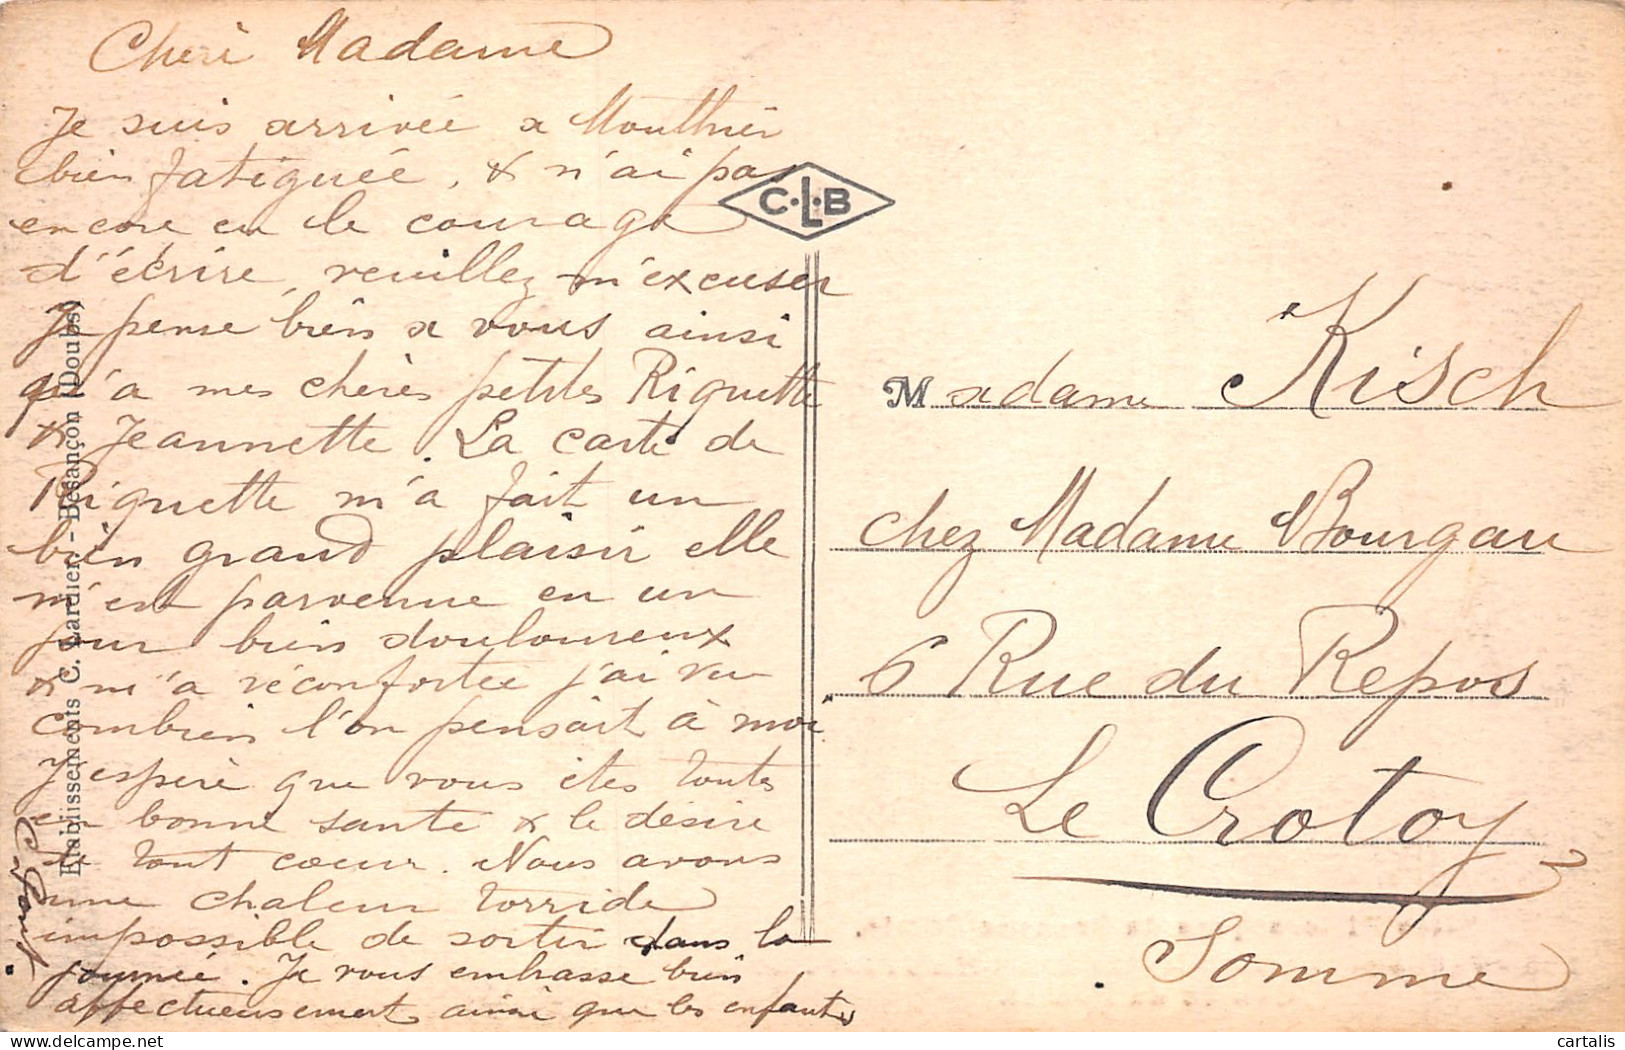 Cheri Madame
Je suis arrivée a Mouthier
bien fatiguée, & n'ai pas
encore eu le courage
d'écrire, veuillez m'excuser
Je pense bien a vous ainsi
qu'a mes chères petites Riquette
& Jeannette. La carte de
Riquette m'a fait un
bien grand plaisir elle
m'est parvenue en un
jour bien douloureux
& m'a réconfortée j'ai vu
combien l'on pensait à moi
J'espère que vous êtes toutes
en bonne santé & le désire
de tout cœur. Nous avons
une chaleur torride
impossible de sortir dans la
journée. Je vous embrasse bien
affectueusement ainsi que les enfants
Etablissements C. Lardier - Besançon (Doubs)
C·L·B
Madame Kisch
chez Madame Bourgau
6 Rue du Repos
Le Crotoy
Somme
cartalis
delcampe.net